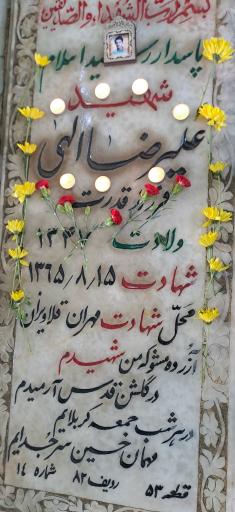 بسم رب الشهداء والصدیقین
پاسدار رشید اسلام
شهید
علیرضا الهی
فرزند قدرت
ولادت ۱۳۴۷
شهادت ۱۳۶۵/۸/۱۵
محل شهادت مهران قلاویزان
آزرده مشو که من شهیدم
در گلشن قدس آرمیدم
در هر شب جمعه کربلایم
مهمان حسین سر جدایم
قطعه ۵۳ ردیف ۸۲ شماره ۱۴